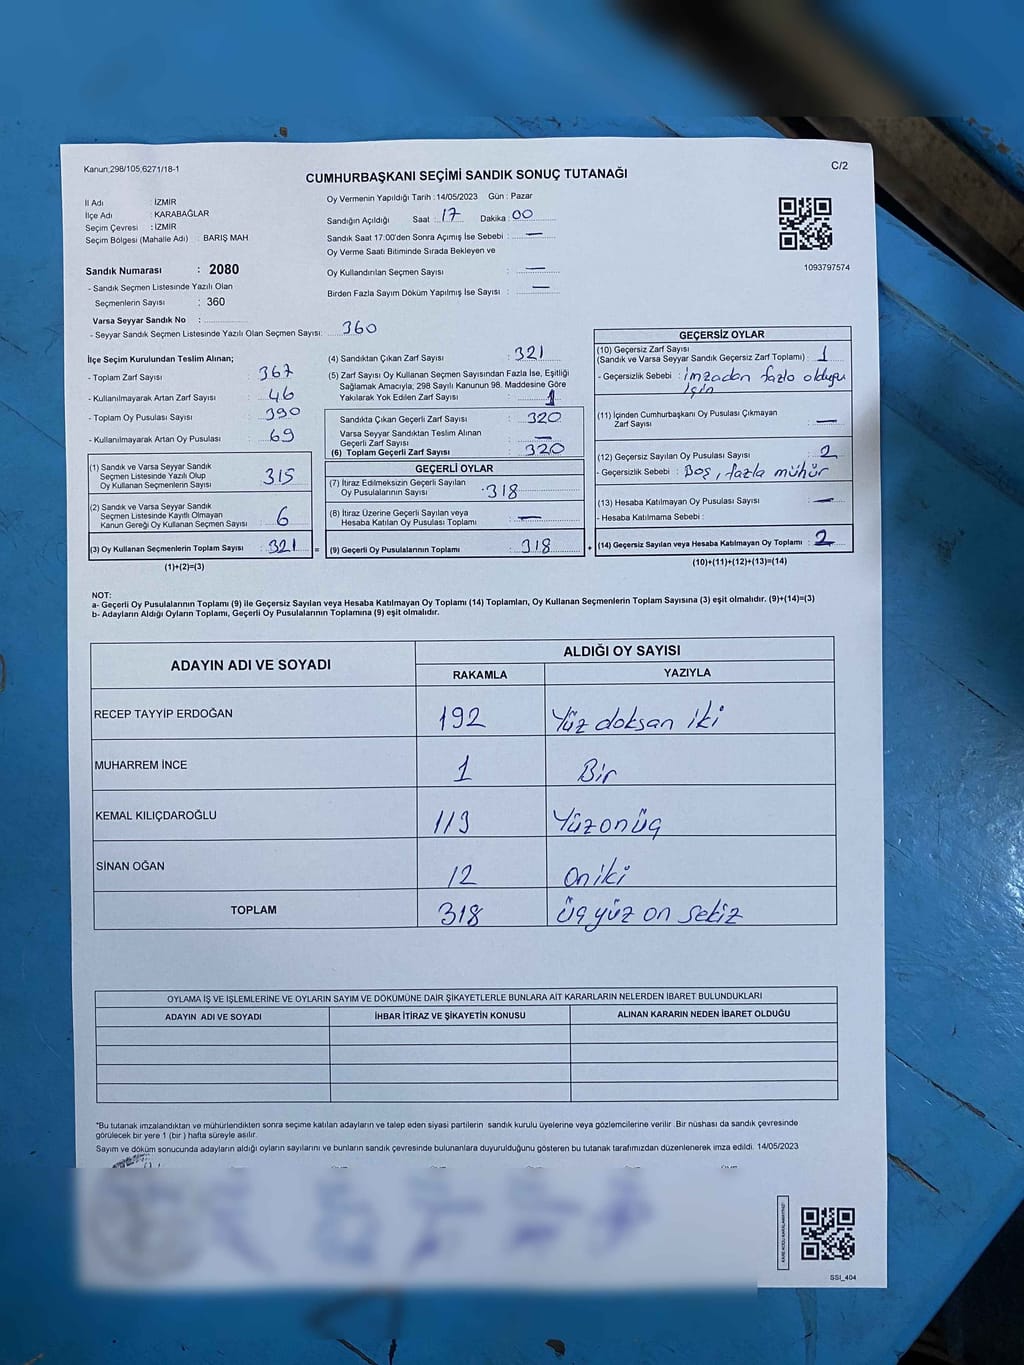 Kanun:298/105,6271/18-1
C/2
CUMHURBAŞKANI SEÇİMİ SANDIK SONUÇ TUTANAĞI
İl Adı : İZMİR
İlçe Adı : KARABAĞLAR
Seçim Çevresi : İZMİR
Seçim Bölgesi (Mahalle Adı) : BARIŞ MAH
Sandık Numarası : 2080
- Sandık Seçmen Listesinde Yazılı Olan
Seçmenlerin Sayısı : 360
Varsa Seyyar Sandık No :
- Seyyar Sandık Seçmen Listesinde Yazılı Olan Seçmen Sayısı: 360
Oy Vermenin Yapıldığı Tarih : 14/05/2023 Gün : Pazar
Sandığın Açıldığı Saat : 17 Dakika : 00
Sandık Saat 17:00'den Sonra Açımış İse Sebebi : —
Oy Verme Saati Bitiminde Sırada Bekleyen ve
Oy Kullandırılan Seçmen Sayısı : —
Birden Fazla Sayım Döküm Yapılmış İse Sayısı : —
1093797574
İlçe Seçim Kurulundan Teslim Alınan;
- Toplam Zarf Sayısı : 367
- Kullanılmayarak Artan Zarf Sayısı : 46
- Toplam Oy Pusulası Sayısı : 390
- Kullanılmayarak Artan Oy Pusulası : 69
(1) Sandık ve Varsa Seyyar Sandık
Seçmen Listesinde Yazılı Olup
Oy Kullanan Seçmenlerin Sayısı : 315
(2) Sandık ve Varsa Seyyar Sandık
Seçmen Listesinde Kayıtlı Olmayan
Kanun Gereği Oy Kullanan Seçmen Sayısı : 6
(3) Oy Kullanan Seçmenlerin Toplam Sayısı : 321 =
(1)+(2)=(3)
(4) Sandıktan Çıkan Zarf Sayısı : 321
(5) Zarf Sayısı Oy Kullanan Seçmen Sayısından Fazla İse, Eşitliği
Sağlamak Amacıyla; 298 Sayılı Kanunun 98. Maddesine Göre
Yakılarak Yok Edilen Zarf Sayısı : 1
Sandıkta Çıkan Geçerli Zarf Sayısı : 320
Varsa Seyyar Sandıktan Teslim Alınan
Geçerli Zarf Sayısı : —
(6) Toplam Geçerli Zarf Sayısı : 320
GEÇERLİ OYLAR
(7) İtiraz Edilmeksizin Geçerli Sayılan
Oy Pusulalarının Sayısı : 318
(8) İtiraz Üzerine Geçerli Sayılan veya
Hesaba Katılan Oy Pusulası Toplamı : —
(9) Geçerli Oy Pusulalarının Toplamı : 318 +
GEÇERSİZ OYLAR
(10) Geçersiz Zarf Sayısı
(Sandık ve Varsa Seyyar Sandık Geçersiz Zarf Toplamı) : 1
- Geçersizlik Sebebi : imzadan fazla olduğu
için
(11) İçinden Cumhurbaşkanı Oy Pusulası Çıkmayan
Zarf Sayısı : —
(12) Geçersiz Sayılan Oy Pusulası Sayısı : 2
- Geçersizlik Sebebi : Boş, fazla mühür
(13) Hesaba Katılmayan Oy Pusulası Sayısı : —
- Hesaba Katılmama Sebebi :
(14) Geçersiz Sayılan veya Hesaba Katılmayan Oy Toplamı : 2
(10)+(11)+(12)+(13)=(14)
NOT:
a- Geçerli Oy Pusulalarının Toplamı (9) ile Geçersiz Sayılan veya Hesaba Katılmayan Oy Toplamı (14) Toplamları, Oy Kullanan Seçmenlerin Toplam Sayısına (3) eşit olmalıdır. (9)+(14)=(3)
b- Adayların Aldığı Oyların Toplamı, Geçerli Oy Pusulalarının Toplamına (9) eşit olmalıdır.
ADAYIN ADI VE SOYADI ALDIĞI OY SAYISI
RAKAMLA YAZIYLA
RECEP TAYYİP ERDOĞAN 192 Yüz doksan iki
MUHARREM İNCE 1 Bir
KEMAL KILIÇDAROĞLU 113 Yüzonüç
SİNAN OĞAN 12 Oniki
TOPLAM 318 üçyüz on sekiz
OYLAMA İŞ VE İŞLEMLERİNE VE OYLARIN SAYIM VE DÖKÜMÜNE DAİR ŞİKAYETLERLE BUNLARA AİT KARARLARIN NELERDEN İBARET BULUNDUKLARI
ADAYIN ADI VE SOYADI İHBAR İTİRAZ VE ŞİKAYETİN KONUSU ALINAN KARARIN NEDEN İBARET OLDUĞU
*Bu tutanak imzalandıktan ve mühürlendikten sonra seçime katılan adayların ve talep eden siyasi partilerin sandık kurulu üyelerine veya gözlemcilerine verilir. Bir nüshası da sandık çevresinde
görülecek bir yere 1 (bir ) hafta süreyle asılır.
Sayım ve döküm sonucunda adayların aldığı oyların sayılarını ve bunların sandık çevresinde bulunanlara duyurulduğunu gösteren bu tutanak tarafımızdan düzenlenerek imza edildi. 14/05/2023
SSI_404